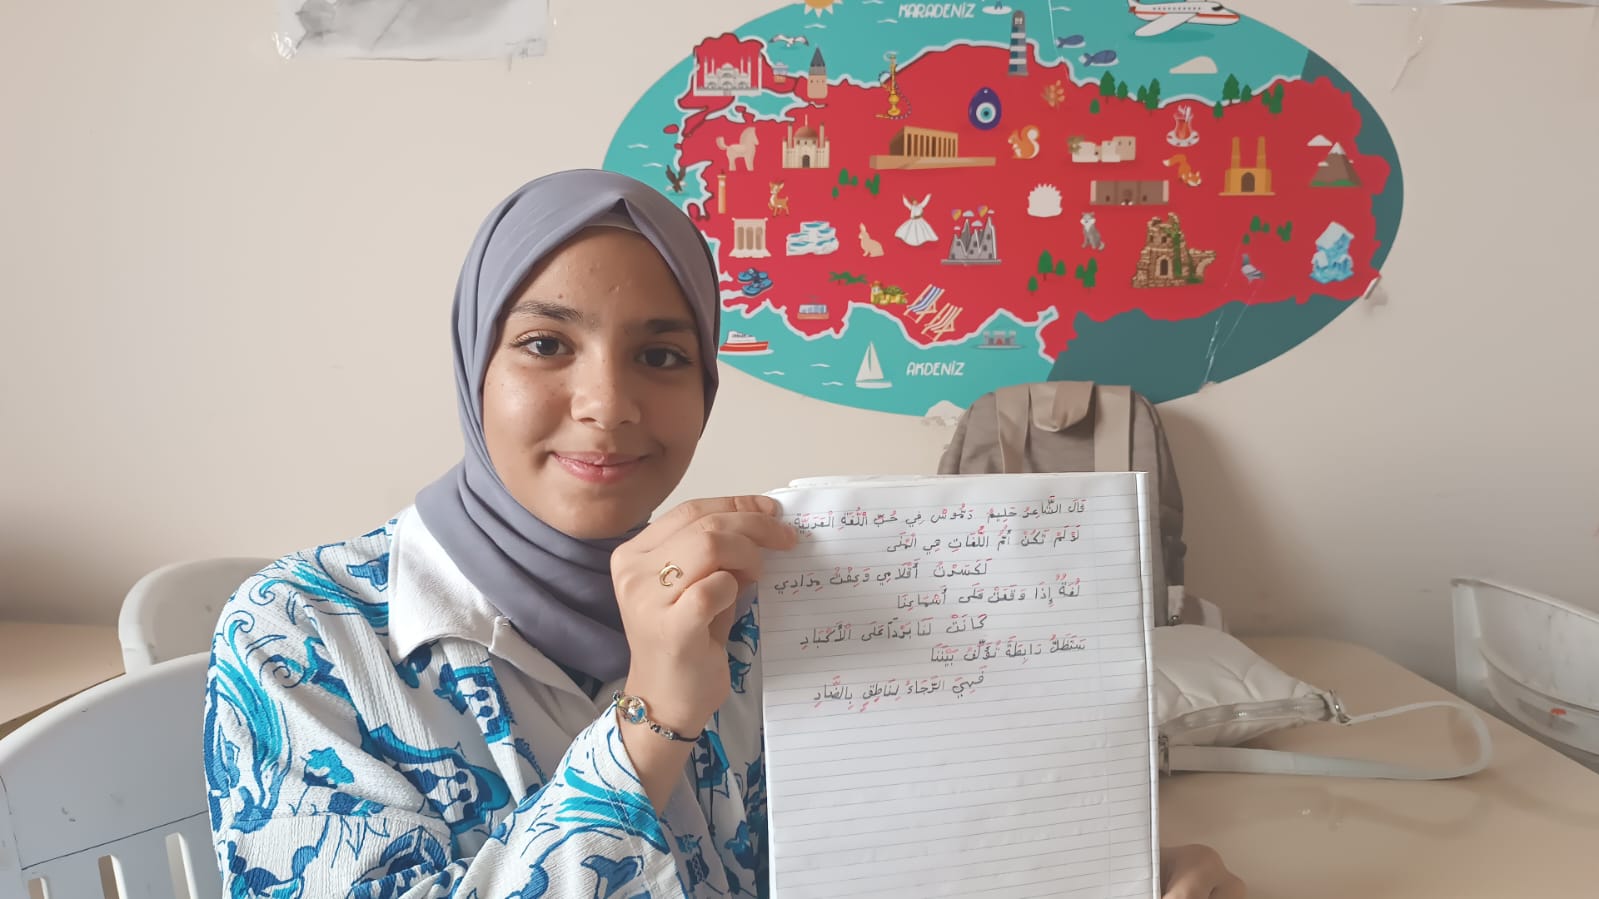 KARADENİZ
AKDENİZ
قَالَ الشَّاعِرُ حَلِيمُ دَمُّوسْ فِي حُبِّ اللُّغَةِ الْعَرَبِيَّةِ:
لَوْ لَمْ تَكُنْ أُمُّ اللُّغَاتِ هِيَ الْمُنَى
لَكَسَرْتُ أَقْلَامِي وَعِفْتُ مِدَادِي
لُغَةٌ إِذَا وَقَعَتْ عَلَى أَسْمَاعِنَا
كَانَتْ لَنَا بَرْدًا عَلَى الْأَكْبَادِ
سَتَظَلُّ رَابِطَةً تُؤَلِّفُ بَيْنَنَا
فَهِيَ الرَّجَاءُ لِنَاطِقٍ بِالضَّادِ